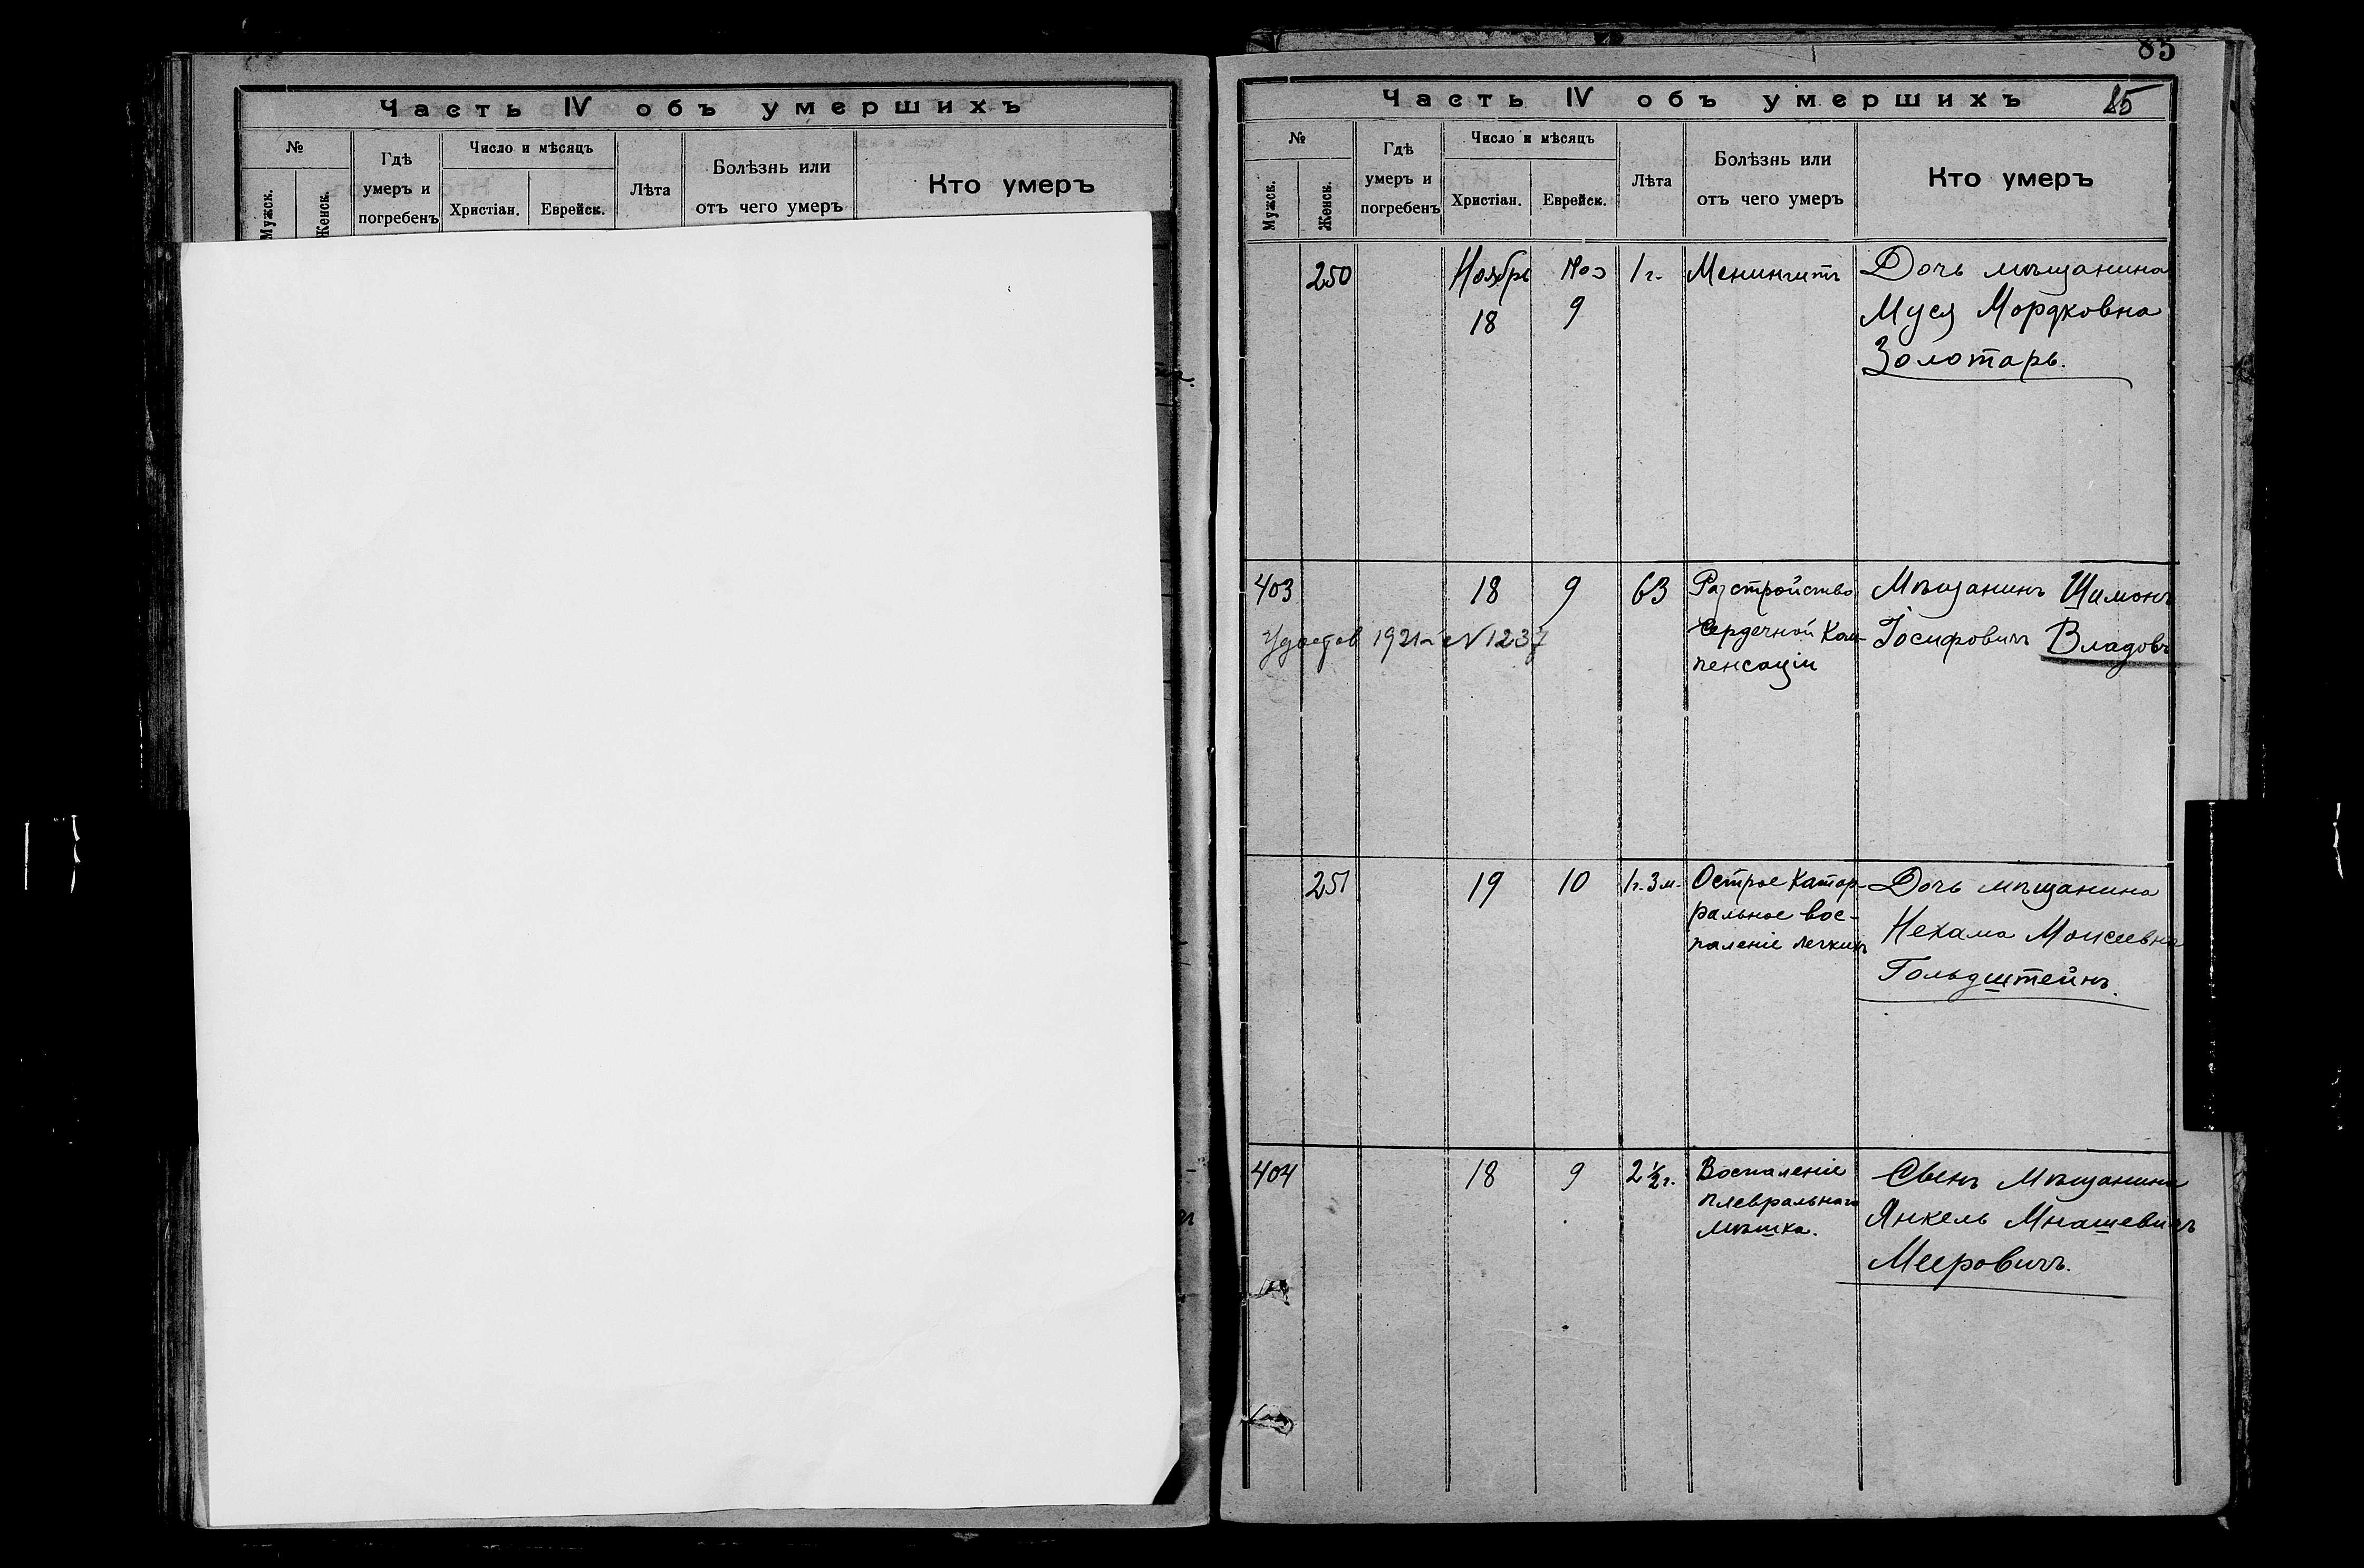 Часть IV объ умершихъ
№
Мужск.
Женск.
Гдѣ
умеръ и
погребенъ
Число и мѣсяцъ
Христіан.
Еврейск.
Лѣта
Болѣзнь или
отъ чего умеръ
Кто умеръ
85
Часть IV объ умершихъ
85
№
Мужск.
Женск.
Гдѣ
умеръ и
погребенъ
Число и мѣсяцъ
Христіан.
Еврейск.
Лѣта
Болѣзнь или
отъ чего умеръ
Кто умеръ
250
Ноябрь
18
9
1 г.
Менингитъ
Дочь мѣщанина
Муся Мордковна
Золотарь.
403
18
9
63
Разстройство
сердечной Ком-
пенсаціи
Мѣщанинъ Шимонъ
Іосифовичъ Владовъ
1921 г. N 1237
251
19
10
1г. 3 м.
Острое Катар-
ральное вос-
паленіе легкихъ
Дочь мѣщанина
Нехама Моисеевна
Гольдштейнъ.
404
18
9
2 ½ г.
Воспаленіе
плевральнаго
мѣшка.
Сынъ Мѣщанина
Янкель Мнашевичъ
Мееровичъ.